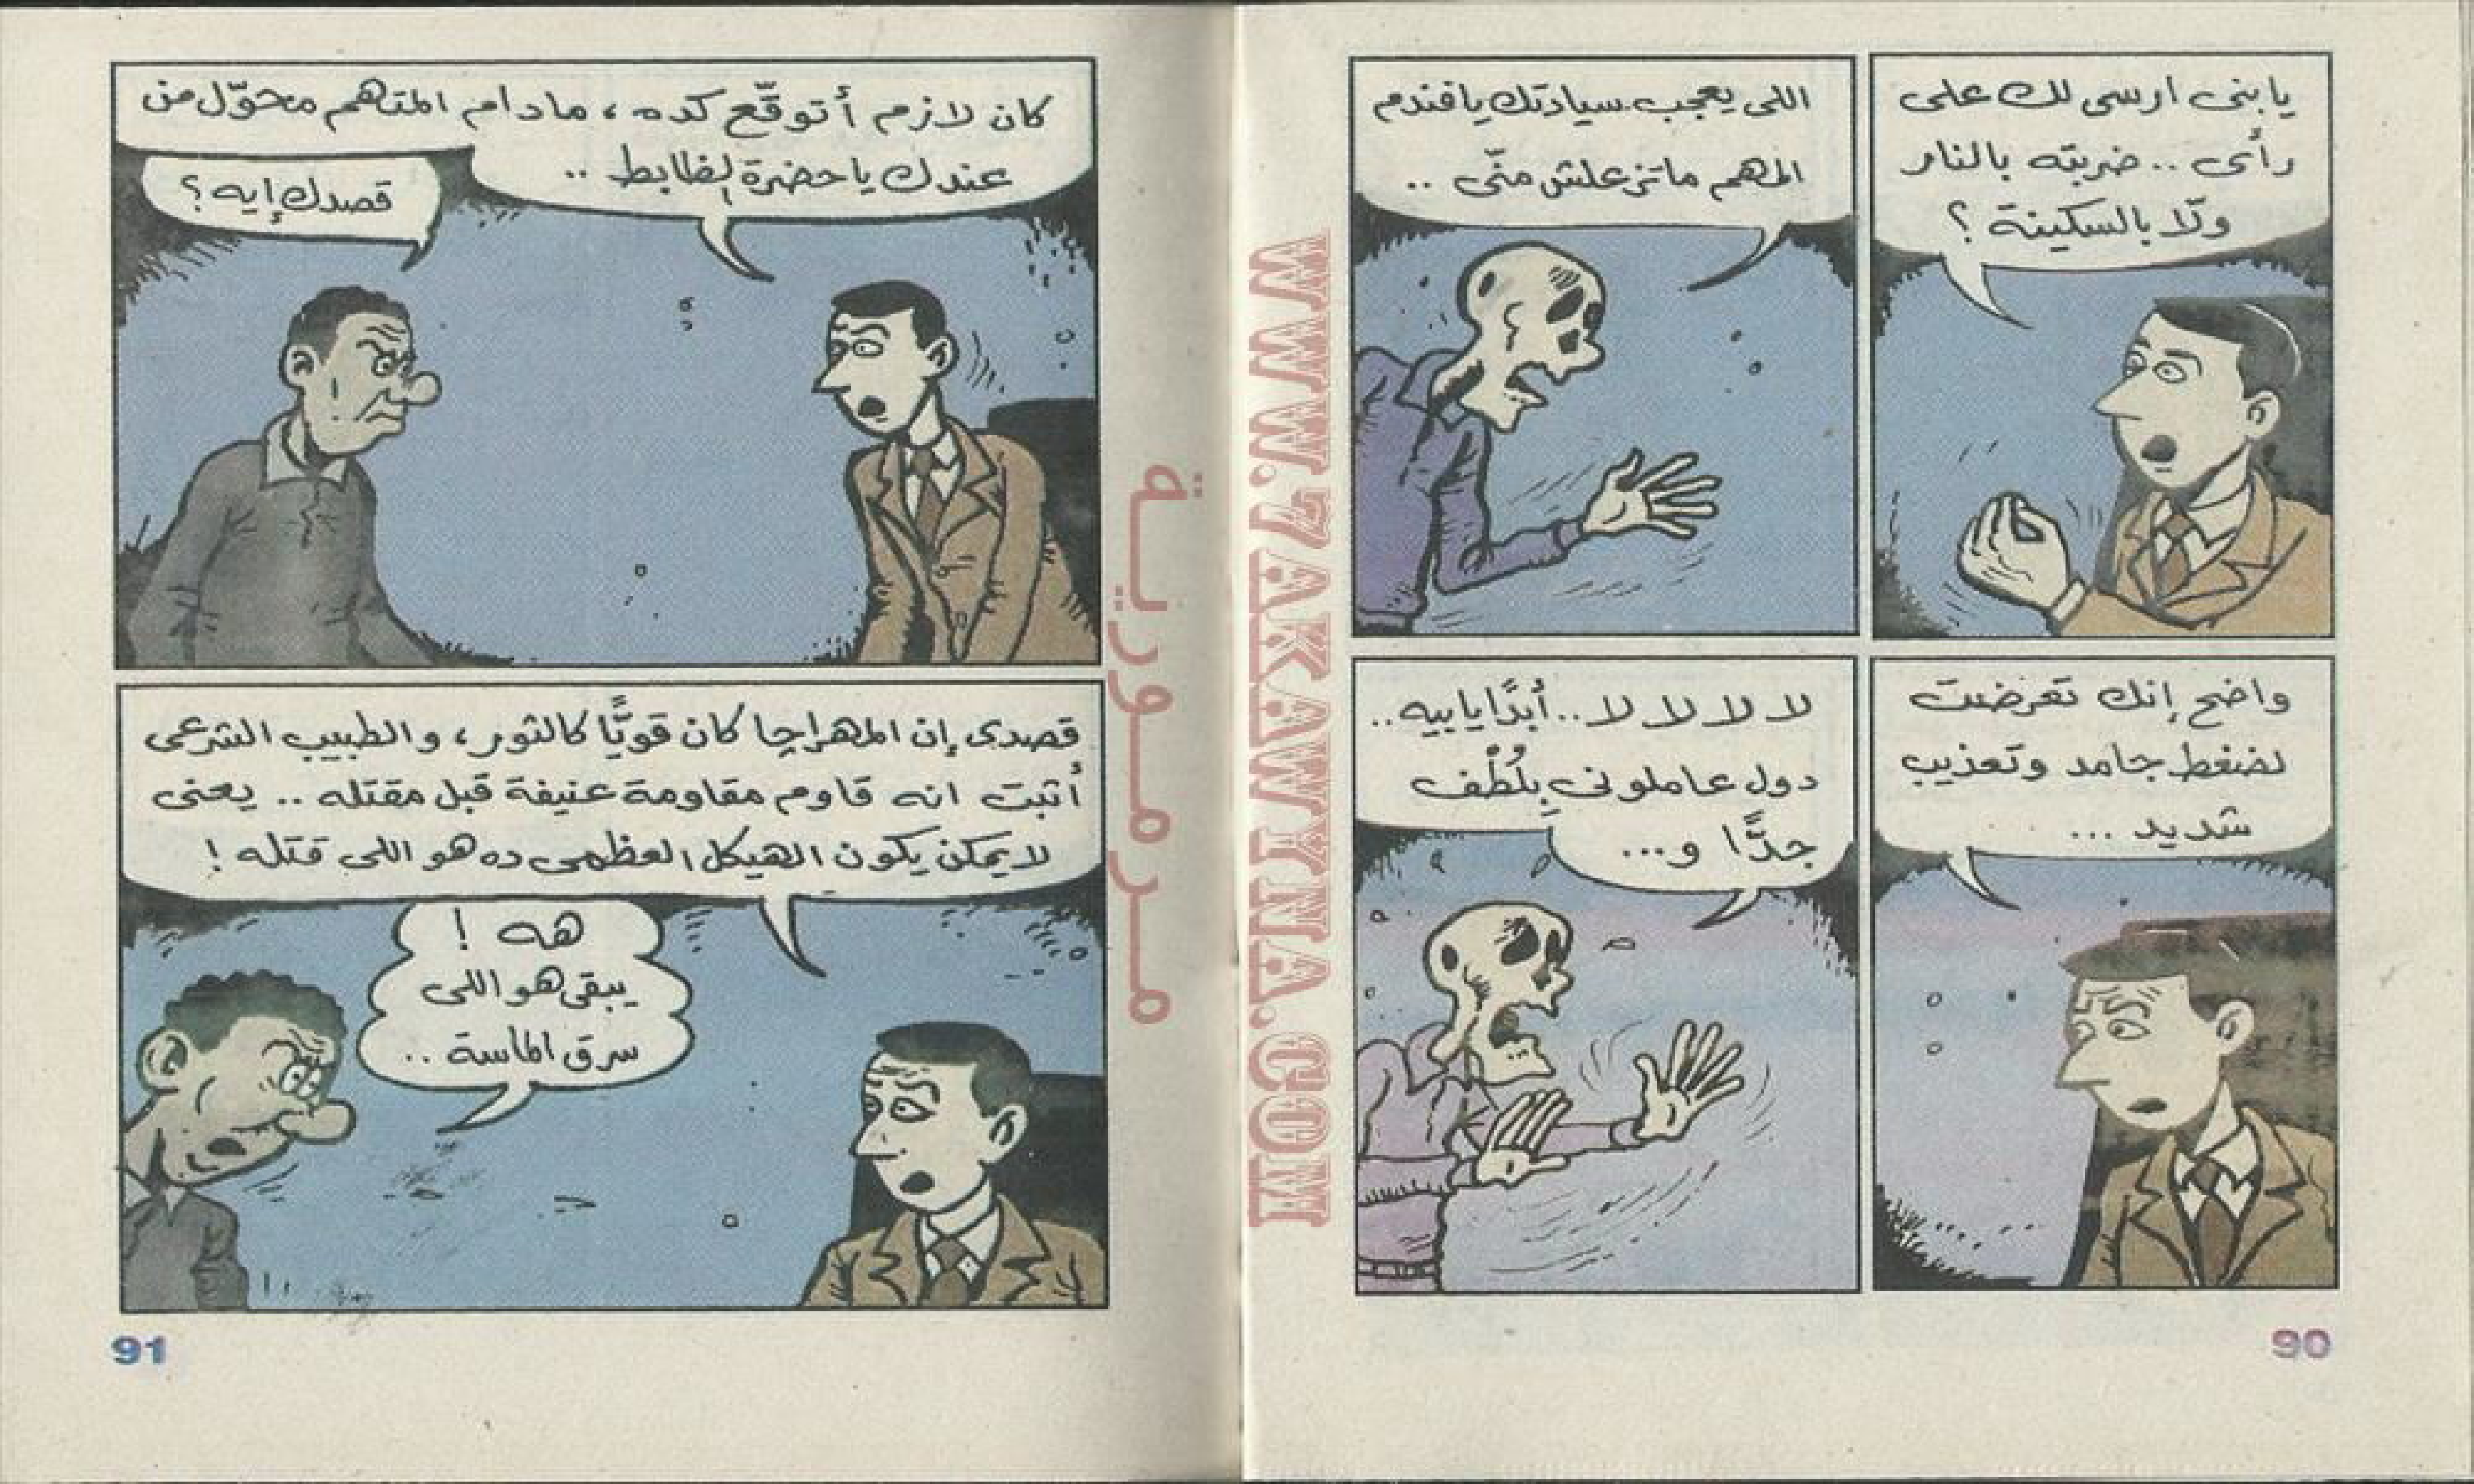 يا بنى ارسى لك على
رأى .. ضربته بالنار
ولّا بالسكينة ؟
اللى يعجب سيادتك يا فندم
المهم ماتزعلش منّى ..
واضح إنك تعرضت
لضغط جامد وتعذيب
شديد ...
لا لا لا لا .. أبدًا يا بيه ..
دول عاملونى بِلُطْف
جدًّا و...
90
كان لازم أتوقّع كده ، مادام المتهم محوّل من
عندك يا حضرة الظابط ..
قصدك إيه ؟
قصدى إن المهراجا كان قويًّا كالثور ، والطبيب الشرعى
أثبت انه قاوم مقاومة عنيفة قبل مقتله .. يعنى
لا يمكن يكون الهيكل العظمى ده هو اللى قتله !
هه !
يبقى هو اللى
سرق الماسة ..
91
مرمورية
WWW.7AKAWYNA.COM